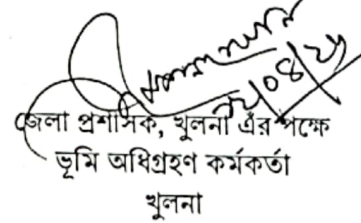 জেলা প্রশাসক, খুলনা এঁর পক্ষে
ভূমি অধিগ্রহণ কর্মকর্তা
খুলনা